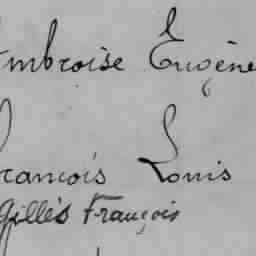 Ambroise Eugène
François Louis
Gilles François